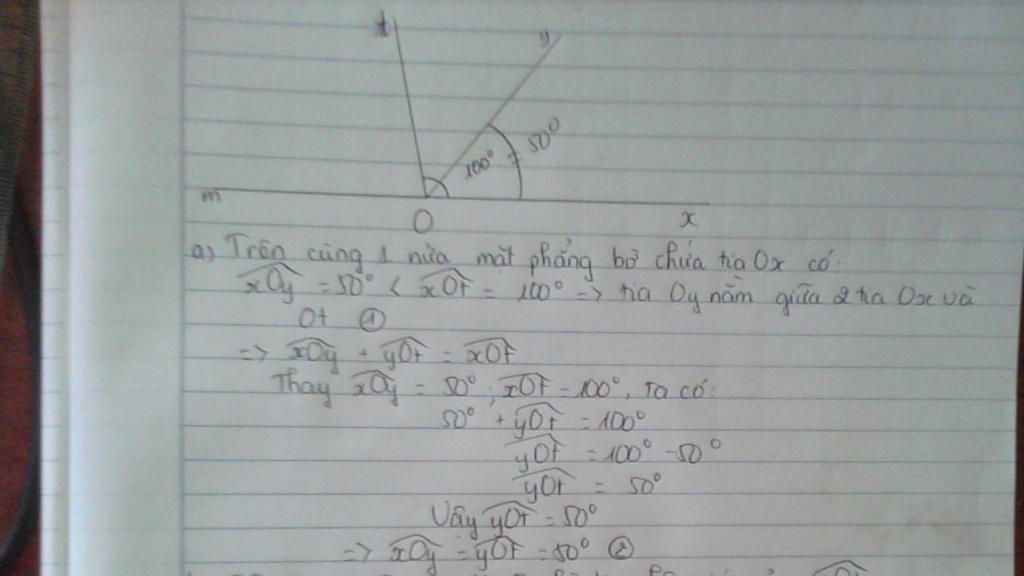 t
y
100°
50°
m
O
x
a) Trên cùng 1 nửa mặt phẳng bờ chứa tia Ox có:
xOy = 50° < xOt = 100° => tia Oy nằm giữa 2 tia Ox và
Ot ①
=> xOy + yOt = xOt
Thay xOy = 50°; xOt = 100°, ta có:
50° + yOt = 100°
yOt = 100° - 50°
yOt = 50°
Vậy yOt = 50°
=> xOy = yOt = 50° ②